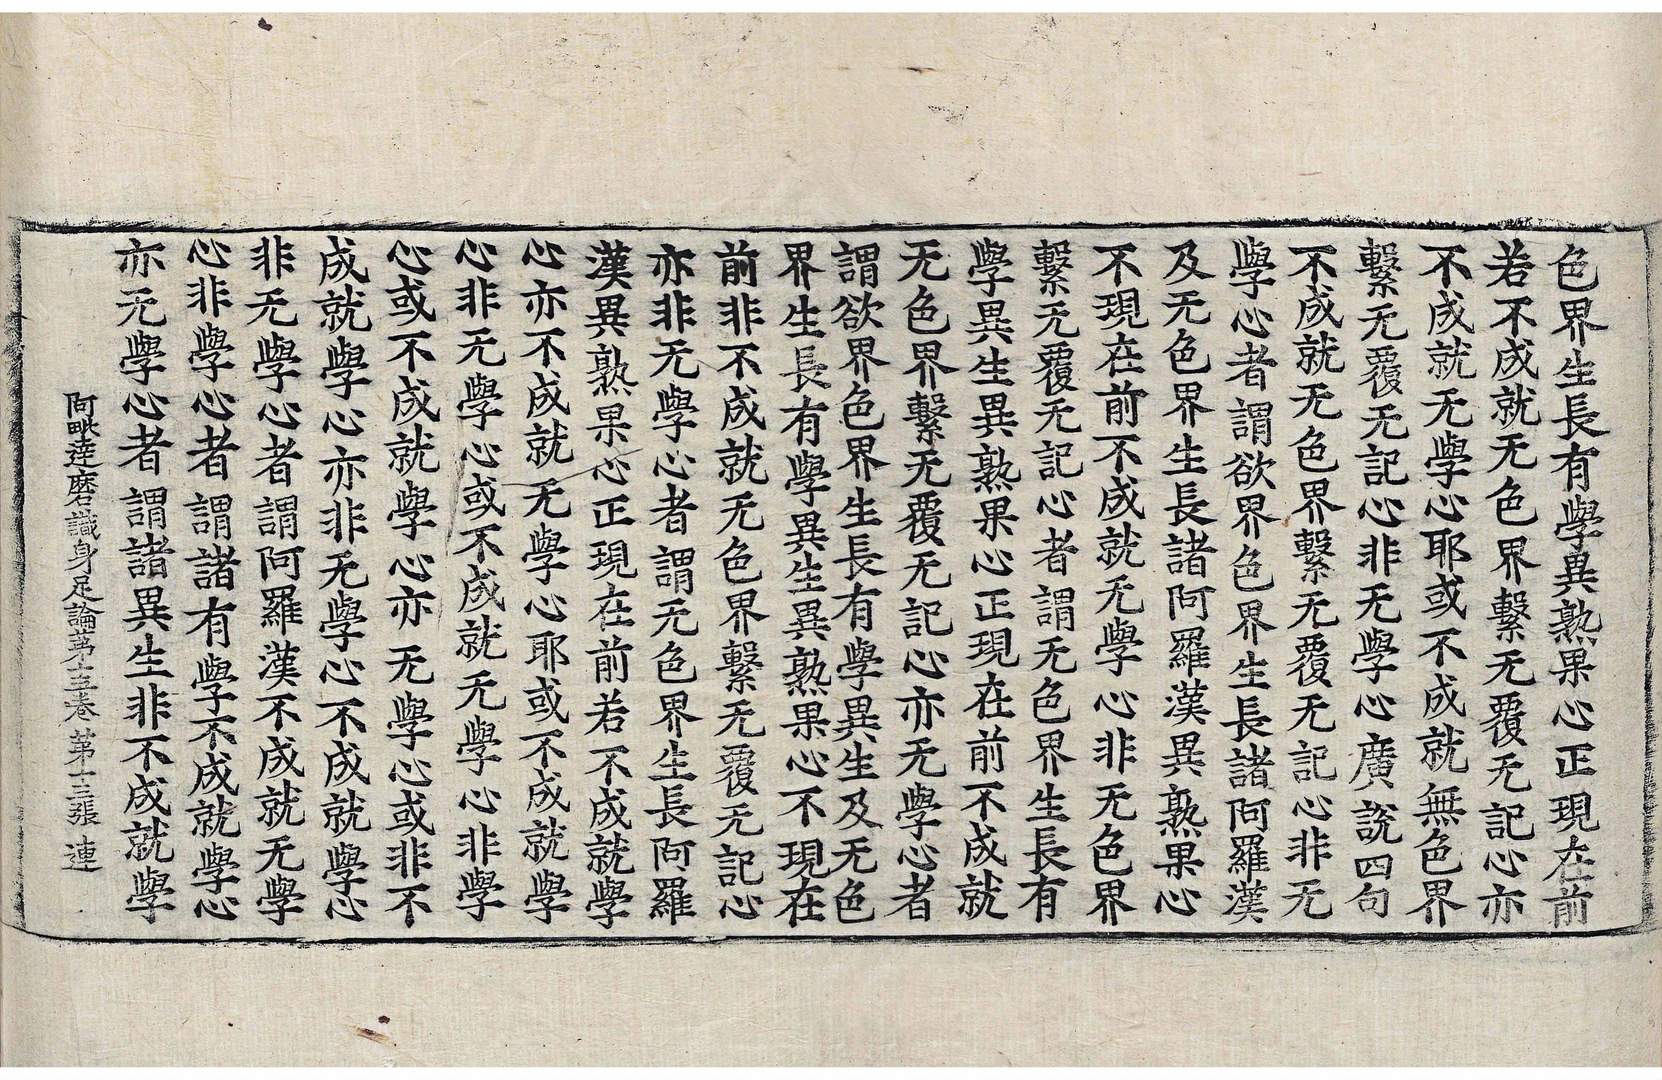 色界生長有學異熟果心正現在前
若不成就无色界繫无覆无記心亦
不成就无學心耶或不成就無色界
繫无覆无記心非无學心廣說四句
不成就无色界繫无覆无記心非无
學心者謂欲界色界生長諸阿羅漢
及无色界生長諸阿羅漢異熟果心
不現在前不成就无學心非无色界
繫无覆无記心者謂无色界生長有
學異生異熟果心正現在前不成就
无色界繫无覆无記心亦无學心者
謂欲界色界生長有學異生及无色
界生長有學異生異熟果心不現在
前非不成就无色界繫无覆无記心
亦非无學心者謂无色界生長阿羅
漢異熟果心正現在前若不成就學
心亦不成就无學心耶或不成就學
心非无學心或不成就无學心非學
心或不成就學心亦无學心或非不
成就學心亦非无學心不成就學心
非无學心者謂阿羅漢不成就无學
心非學心者謂諸有學不成就學心
亦无學心者謂諸異生非不成就學
阿毗達磨識身足論苐十五卷 苐十三張 連